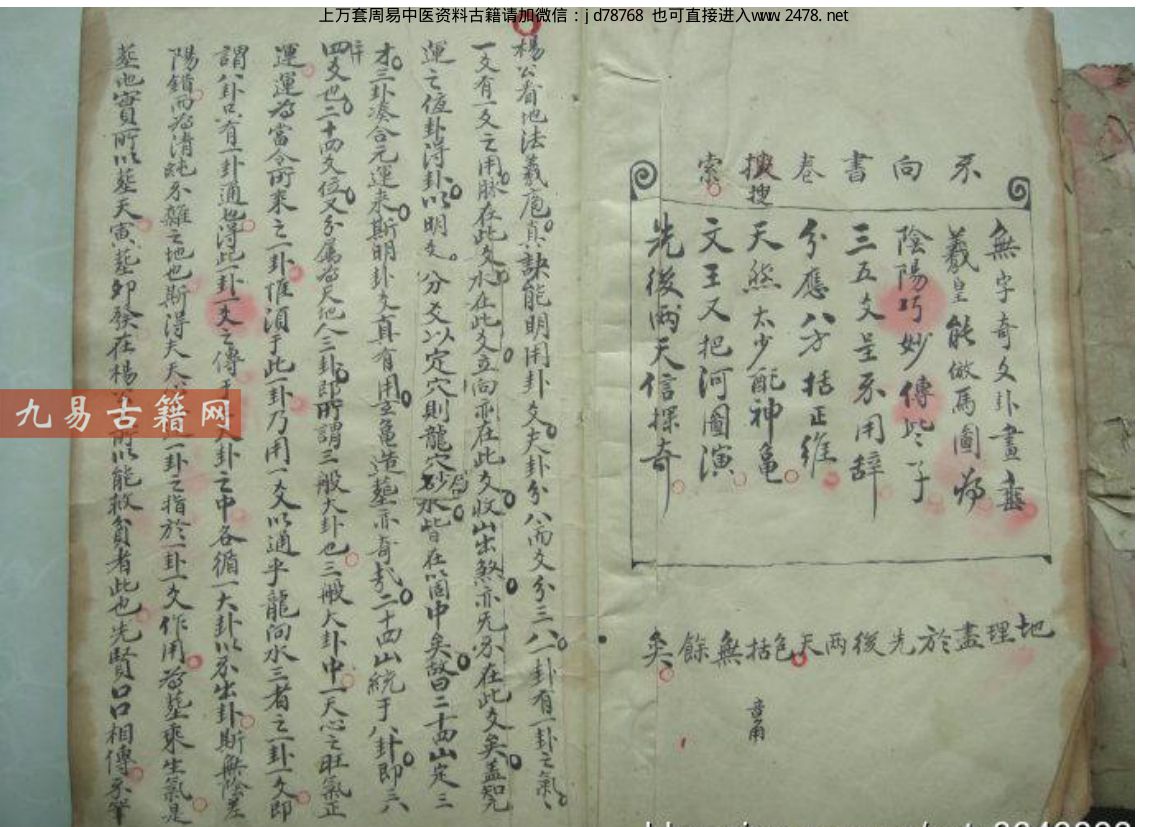 上万套周易中医资料古籍请加微信：jd78768 也可直接进入www.2478.net
不向書卷搜索
搜
無字奇文卦畫
羲皇能倣馬圖
陰陽巧妙傳
三五爻呈不用辞
分應八方括正維
天然太少配神龜
文王又把河圖演
先後兩天信探奇
地理盡於先後兩天包括無餘矣
楊公看地法羲庖真訣能明用卦爻夫卦分八而爻分三八一卦有一卦之氣
一爻有一爻之用脉在此爻水在此爻立向亦在此爻收山出煞亦无不在此爻矣盖知元
運之值卦得卦以明爻分爻以定穴則龍穴砂水皆在箇中矣故曰二十四山定三
才三卦湊合元運来斯明卦爻真有用立龜造墓亦奇哉二十四山統于八卦即六
四爻也二十四爻位又分属為天地人三卦即所謂三般大卦也三般大卦中一天心之旺氣正
運運為當令所来之一卦惟須于此一卦乃用一爻以通乎龍向水三者之一卦一爻即
謂八卦只有一卦通也得此一卦一爻之傳于大卦之中各循一大卦以不出卦斯無陰差
陽錯而為清純不雜之地也斯得夫天一卦之指於一卦一爻作用為塟乘生氣是
塟地實所以塟天寅塟卯發在楊所以能救貧者此也先賢口口相傳不筆
九易古籍网